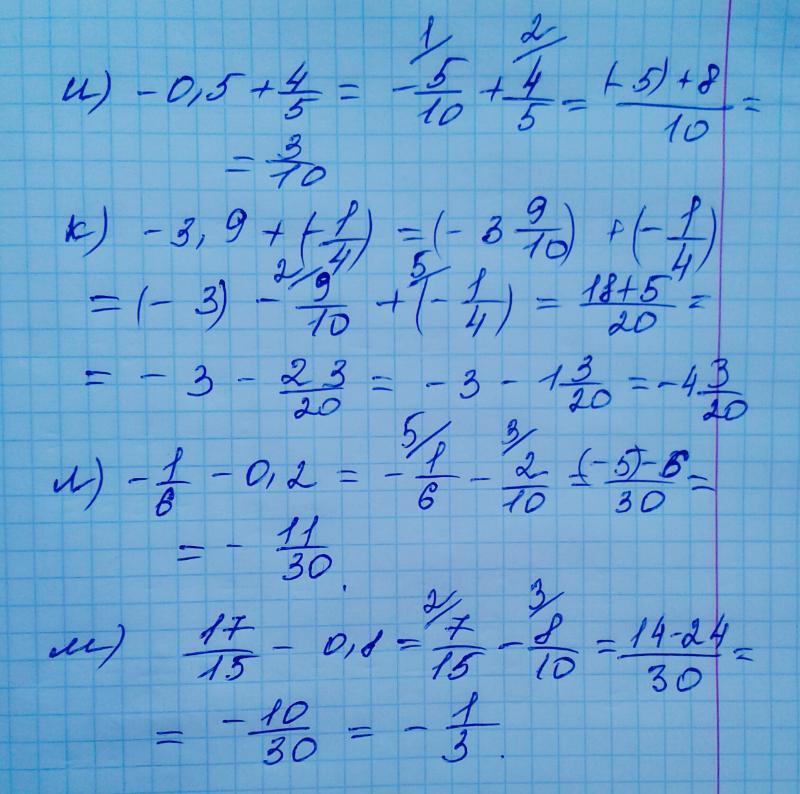 1/ 2/
и) -0,5 + 4/5 = -5/10 + 4/5 = (-5)+8/10 =
= 3/10
к) -3,9 + (-1/4) = (-3 9/10) + (-1/4)
2/ 5/
= (-3) - 9/10 + (-1/4) = 18+5/20 =
= -3 - 23/20 = -3 - 1 3/20 = -4 3/20
5/ 3/
л) -1/6 - 0,2 = -1/6 - 2/10 = (-5)-6/30 =
= - 11/30.
2/ 3/
м) 17/15 - 0,8 = 7/15 - 8/10 = 14-24/30 =
= -10/30 = -1/3.